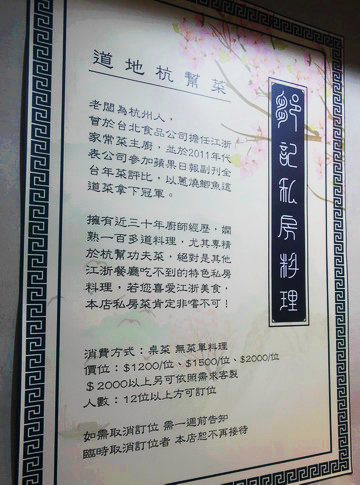 道地杭幫菜
鄒記私房料理
老闆為杭州人，
曾於台北食品公司擔任江浙
家常菜主廚，並於2011年代
表公司參加蘋果日報副刊全
台年菜評比，以蔥燒鯽魚這
道菜拿下冠軍。
擁有近三十年廚師經歷，嫻
熟一百多道料理，尤其專精
於杭幫功夫菜，絕對是其他
江浙餐廳吃不到的特色私房
料理，若您喜愛江浙美食，
本店私房菜肯定非嚐不可！
消費方式：桌菜 無菜單料理
價位：$1200/位、$1500/位、$2000/位
$2000以上另可依照需求客製
人數：12位以上方可訂位
如需取消訂位 需一週前告知
臨時取消訂位者 本店恕不再接待